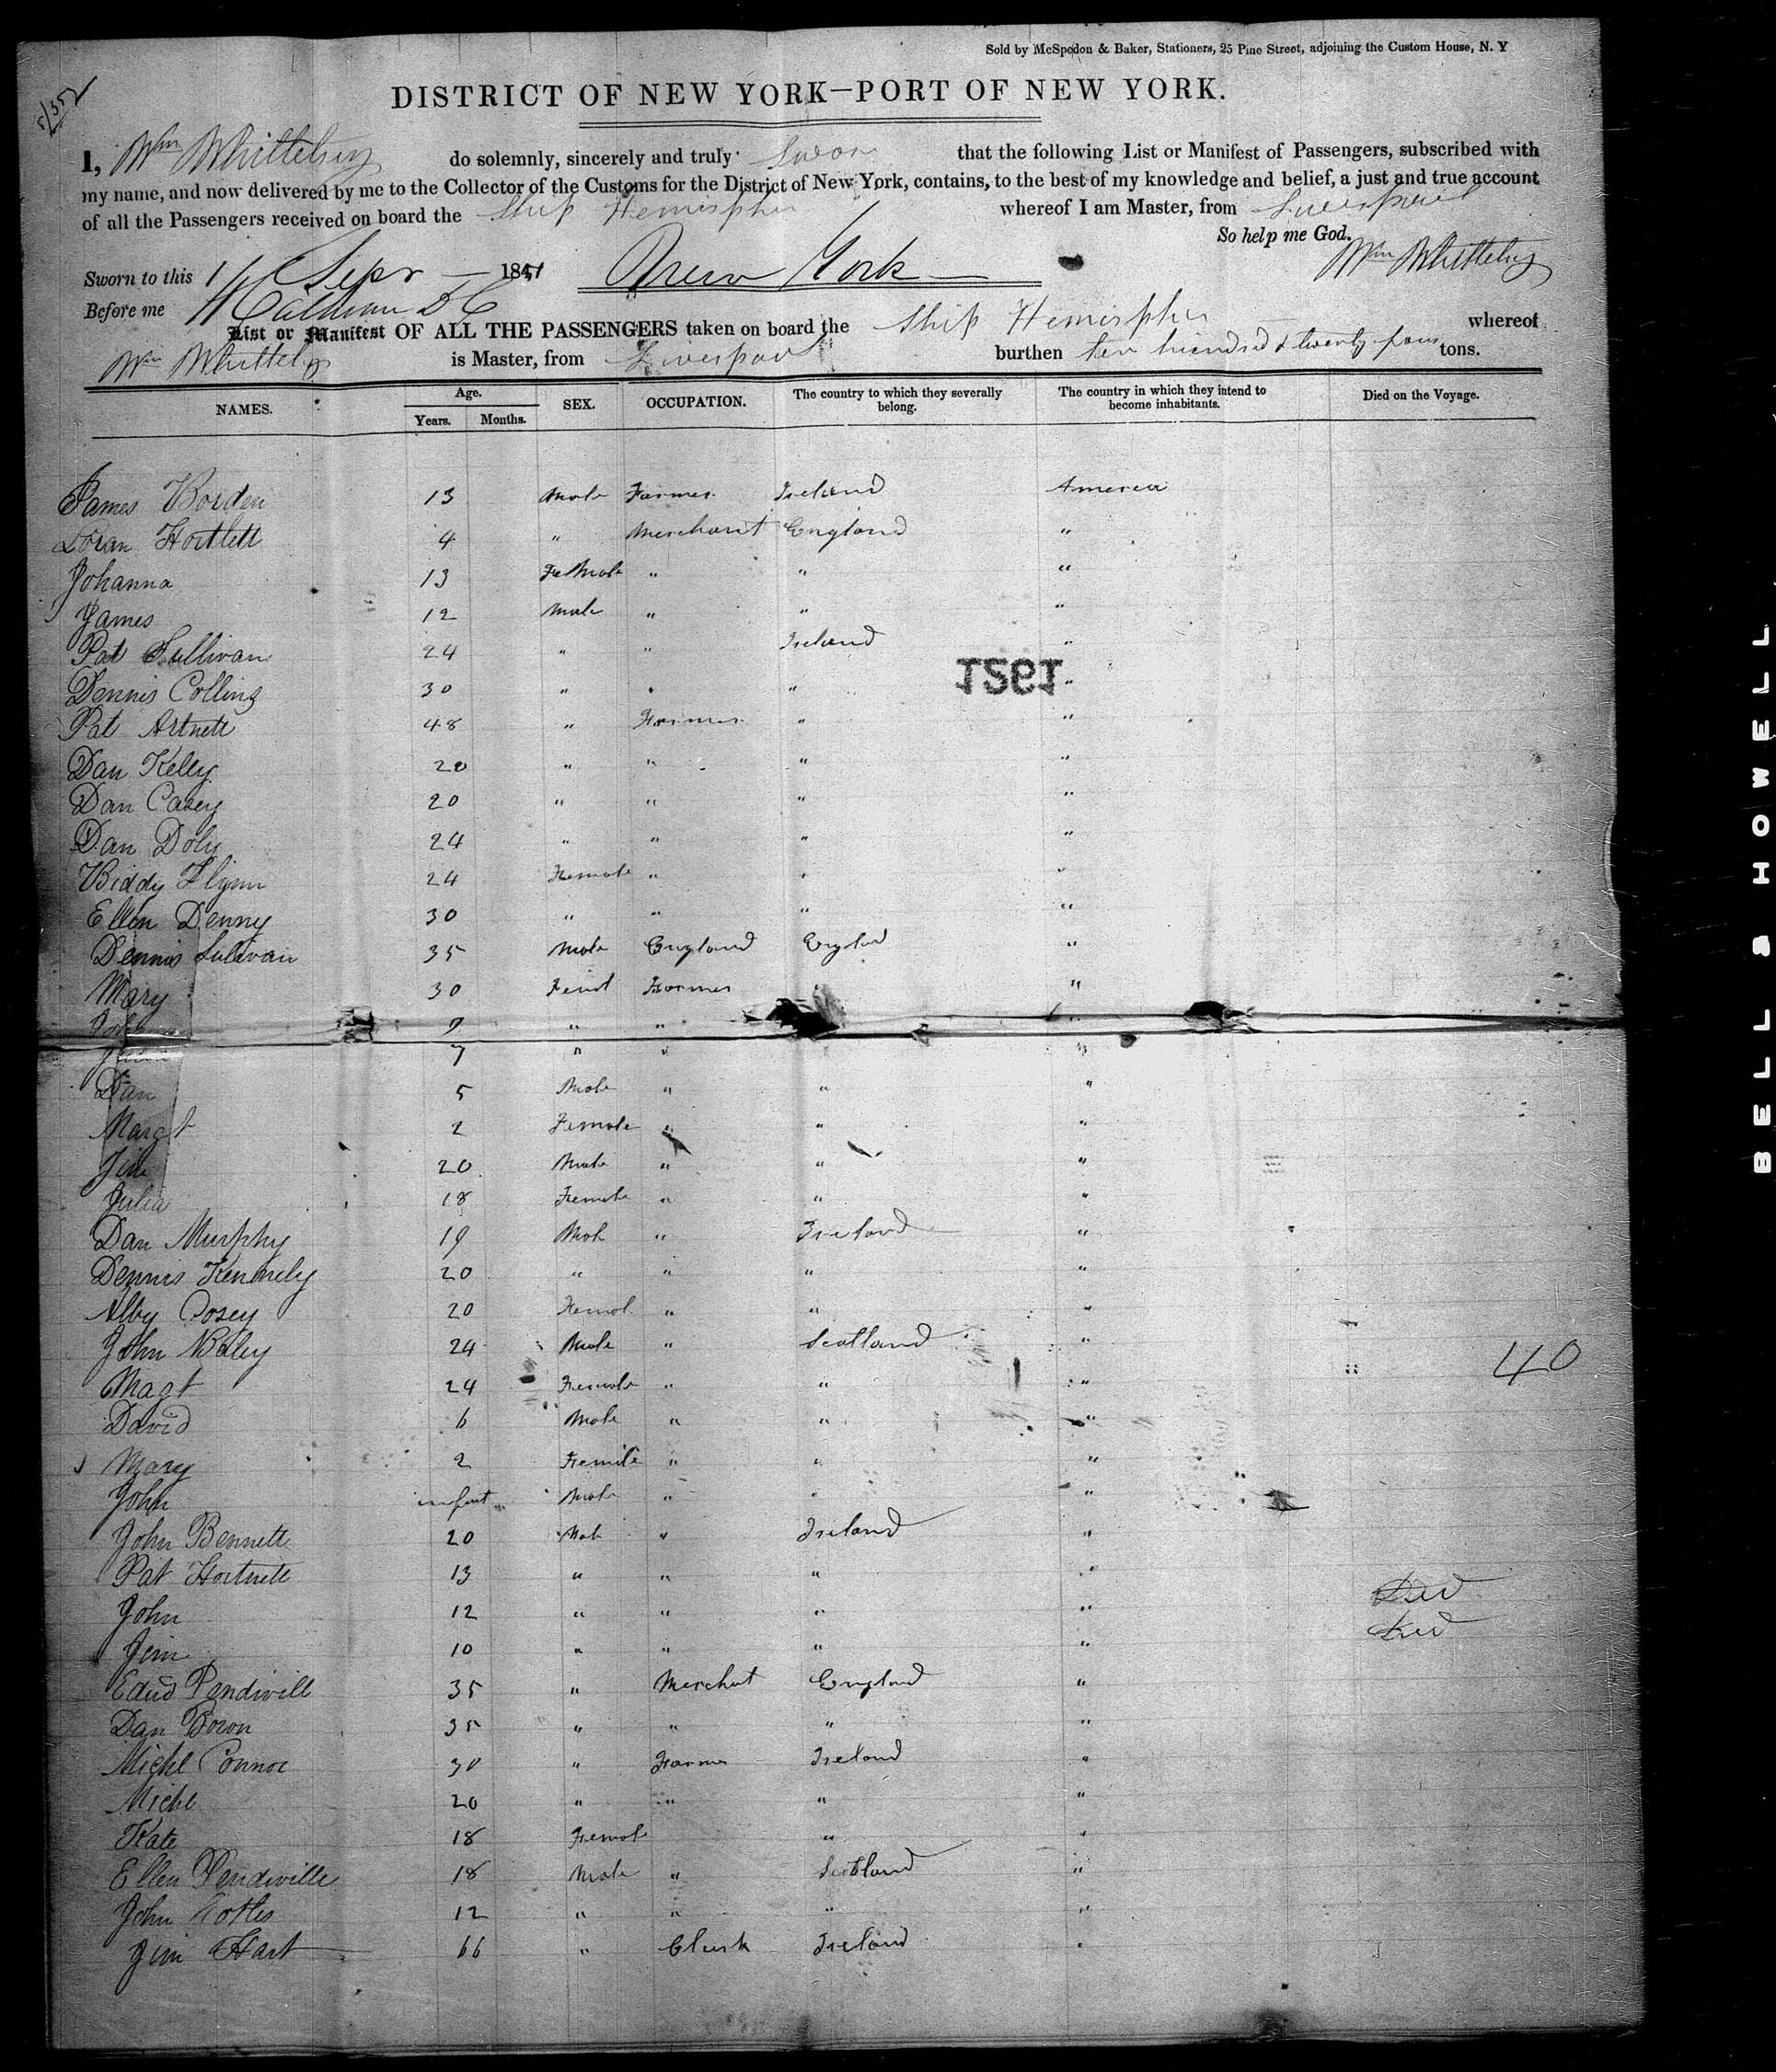 Sold by McSpedon & Baker, Stationers, 25 Pine Street, adjoining the Custom House, N. Y
DISTRICT OF NEW YORK—PORT OF NEW YORK.
I, Wm Whittelsey do solemnly, sincerely and truly swear that the following List or Manifest of Passengers, subscribed with
my name, and now delivered by me to the Collector of the Customs for the District of New York, contains, to the best of my knowledge and belief, a just and true account
of all the Passengers received on board the Ship Hemispher whereof I am Master, from Liverpool
So help me God.
Wm Whittelsey
Sworn to this Sepr 1851 New York
Before me
List or Manifest OF ALL THE PASSENGERS taken on board the Ship Hemispher whereof
Wm Whittelsey is Master, from Liverpool burthen ten hundred & twenty four tons.
NAMES. Age. Years. Months. SEX. OCCUPATION. The country to which they severally belong. The country in which they intend to become inhabitants. Died on the Voyage.
James 13 Male Farmer Ireland America
4 " Merchant England "
Johanna 13 Female " " "
James 12 Male " " "
Pat Sullivan 24 " " Ireland "
1521
Dennis Collins 30 " " " "
Pat Artnett 48 " Farmer " "
Dan Kelly 20 " " " "
Dan Casey 20 " " " "
Dan Doly 24 " " " "
Biddy Flynn 24 Female " " "
Ellen Denny 30 " " " "
Dennis Sulivan 35 Male England Englad "
Mary 30 Feml Farmer "
9 " "
7 " " "
Dan 5 Male " " "
Margt 2 Female " " "
Jim 20 Male " " "
Julia 18 Female " " "
Dan Murphy 19 Mal " Ireland "
Dennis Kennely 20 " " " "
Alby Cosey 20 Femal " " "
John Baley 24 Male " Scotland "
40
Magt 24 Female " " "
David 6 Male " " "
Mary 2 Female " " "
John infant Male " " "
John Bennett 20 Mal " Ireland "
Pat Hartnett 13 " " " "
John 12 " " " " Died
Jim 10 " " " " Died
Edwd Pendivill 35 " Merchat England "
Dan Boron 35 " " " "
Michl Connor 30 " Farmer Ireland "
Michl 20 " " " "
Kate 18 Female " "
Ellen Pendiville 18 Male " Scotland "
John 12 " " " "
Jim Hart 66 " Clerk Ireland "
BELL & HOWELL